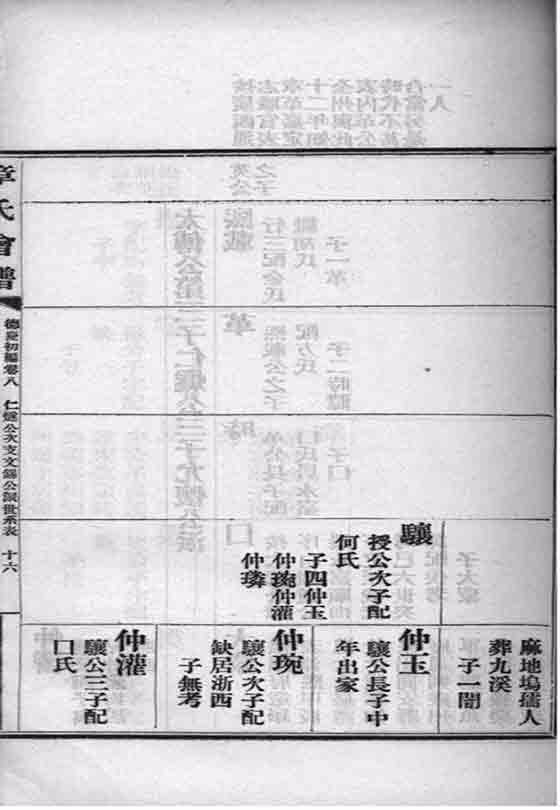 章氏會譜
德慶初編卷八
仁燧公次支文錫公派世系表
十六
驤
授公次子配
何氏
子四仲玉
仲琬仲灌
仲璘
麻地塢孺人
葬九溪
子一閭
仲玉
驤公長子中
年出家
仲琬
驤公次子配
缺居浙西
子無考
仲灌
驤公三子配
口氏